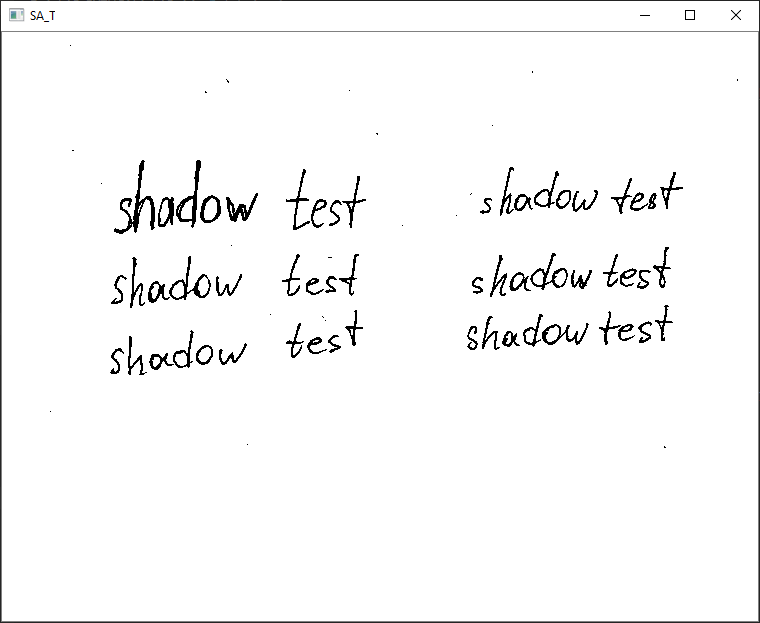 SA_T
shadow test
shadow test
shadow test
shadow test
shadow test
shadow test